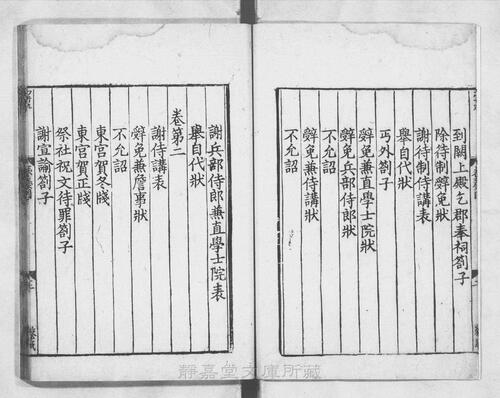 到闕上殿乞郡奉祠劄子
除待制辭免狀
謝待制侍講表
舉自代狀
丐外劄子
辭免兼直學士院狀
辭免兵部侍郎狀
不允詔
辭免兼侍講狀
不允詔
謝兵部侍郎兼直學士院表
舉自代狀
卷第二
謝侍講表
辭免兼詹事狀
不允詔
東宮賀冬牋
東宮賀正牋
祭社祝文待罪劄子
謝宣諭劄子
靜嘉堂文庫所藏